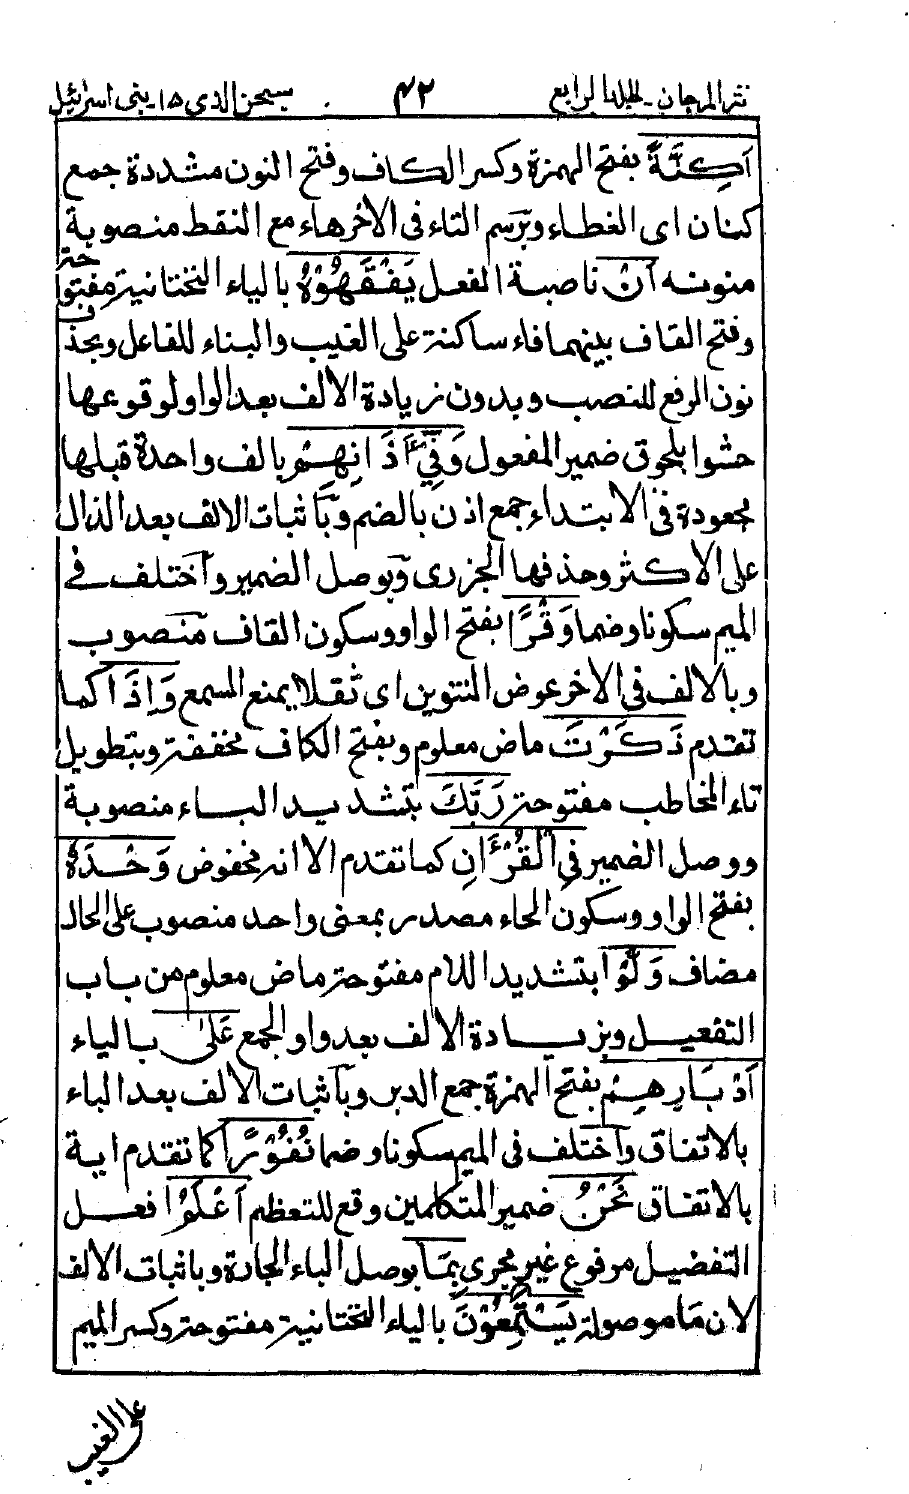 نثر المرجان - الجلد الرابع ٤٢ سبحن الذى ١٥ - بنى اسرائيل
اَكِنَّةً بفتح الهمزة وكسر الكاف وفتح النون مشددة جمع
كنان اى الغطاء وبرسم التاء فى الاخر هاء مع النقط منصوبة
منونه اَنْ ناصبة الفعل يَفْقَهُوْهُ بالياء التختانية مفتوحة
وفتح القاف بينهما فاء ساكنة على الغيب والبناء للفاعل وبحذف
نون الرفع للنصب وبدون زيادة الالف بعد الواو لوقوعها
حشوا بلحوق ضمير المفعول وَفِىْٓ اٰذَانِهِمْ بالف واحدة قبلها
مجعودة فى الابتداء جمع اذن بالضم وباثبات الالف بعد الذال
على الاكثر وحذفها الجزرى وبوصل الضمير واختلف فى
الميم سكونا وضما وَقْرًا بفتح الواو وسكون القاف منصوب
وبالالف فى الاخر عوض التنوين اى ثقلا يمنع السمع وَاِذَا كما
تقدم ذَكَرْتَ ماض معلوم وبفتح الكاف مخففة وبتطويل
تاء المخاطب مفتوحة رَبَّكَ بتشديد الباء منصوبة
ووصل الضمير فِى الْقُرْاٰنِ كما تقدم الا انه مخفوض وَحْدَهٗ
بفتح الواو وسكون الحاء مصدر بمعنى واحد منصوب على الحال
مضاف وَلَّوْا بتشديد اللام مفتوحة ماض معلوم من باب
التفعيل وبزيادة الالف بعد واو الجمع عَلٰٓى بالياء
اَدْبَارِهِمْ بفتح الهمزة جمع الدبر وباثبات الالف بعد الباء
بالاتفاق واختلف فى الميم سكونا وضما نُفُوْرًا كما تقدم اية
بالاتفاق نَحْنُ ضمير المتكلمين وقع للتعظم اَعْلَمُ افعل
التفضيل مرفوع غير مجرى بِمَا بوصل الباء الجارة وباثبات الالف
لان مَا موصولة يَسْتَمِعُوْنَ بالياء التختانية مفتوحة وكسر الميم
على الغيب